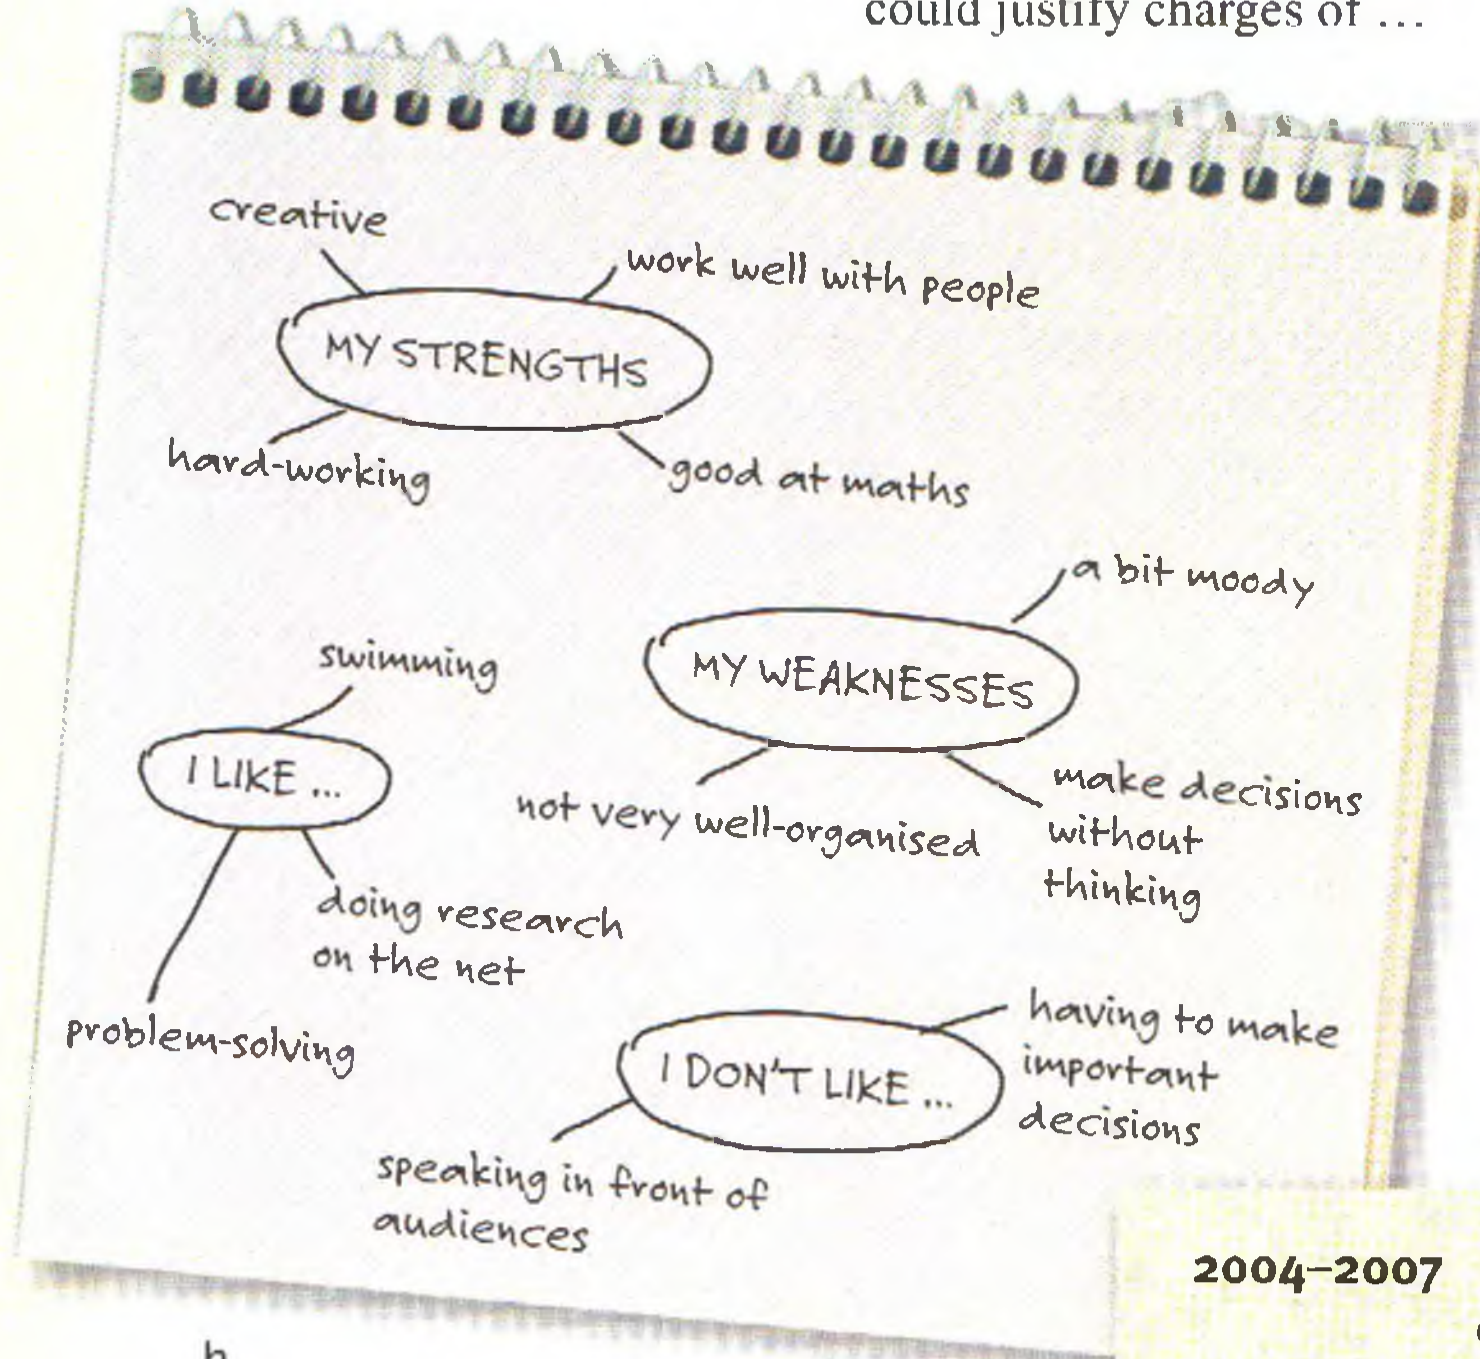 could justify charges of ...
creative
work well with people
MY STRENGTHS
hard-working
good at maths
a bit moody
MY WEAKNESSES
not very well-organised
make decisions
without
thinking
swimming
I LIKE ...
doing research
on the net
problem-solving
having to make
important
decisions
I DON'T LIKE ...
speaking in front of
audiences
2004–2007